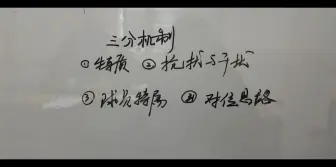 三分机制
①特质 ②抗扰与干扰
③球员特属 ④对位思路